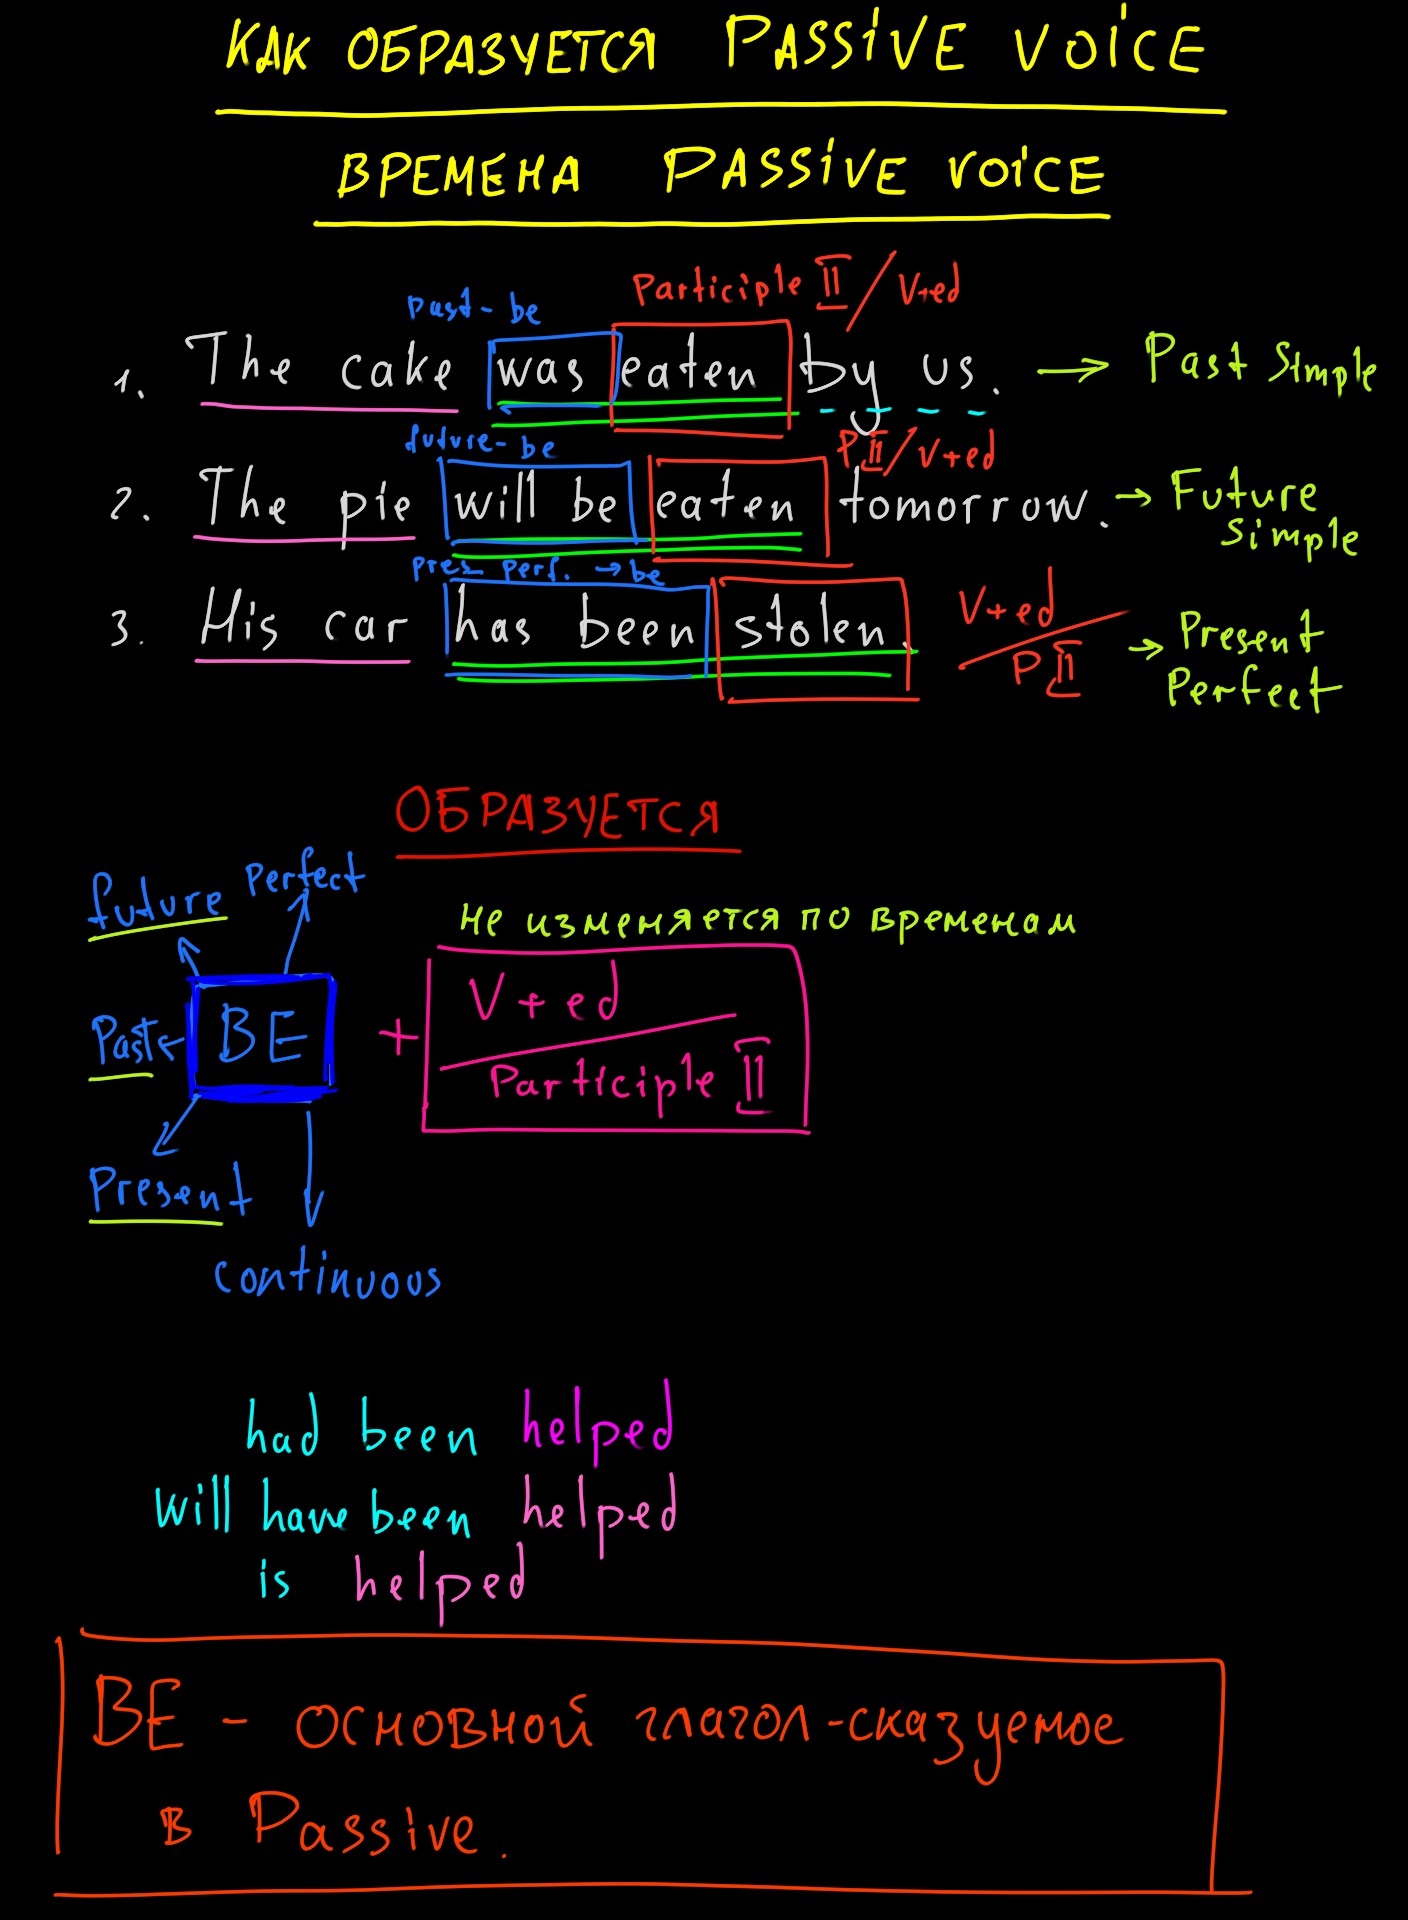 КАК ОБРАЗУЕТСЯ PASSIVE VOICE
ВРЕМЕНА PASSIVE VOICE
past - be Participle II / V+ed
1. The cake was eaten by us. → Past Simple
future - be PII / V+ed
2. The pie will be eaten tomorrow. → Future
Simple
pres perf. → be
3. His car has been stolen. V+ed / PII → Present
Perfect
ОБРАЗУЕТСЯ
future Perfect
Не изменяется по временам
Past BE + V + ed
Participle II
Present
continuous
had been helped
will have been helped
is helped
BE - основной глагол-сказуемое
в Passive.